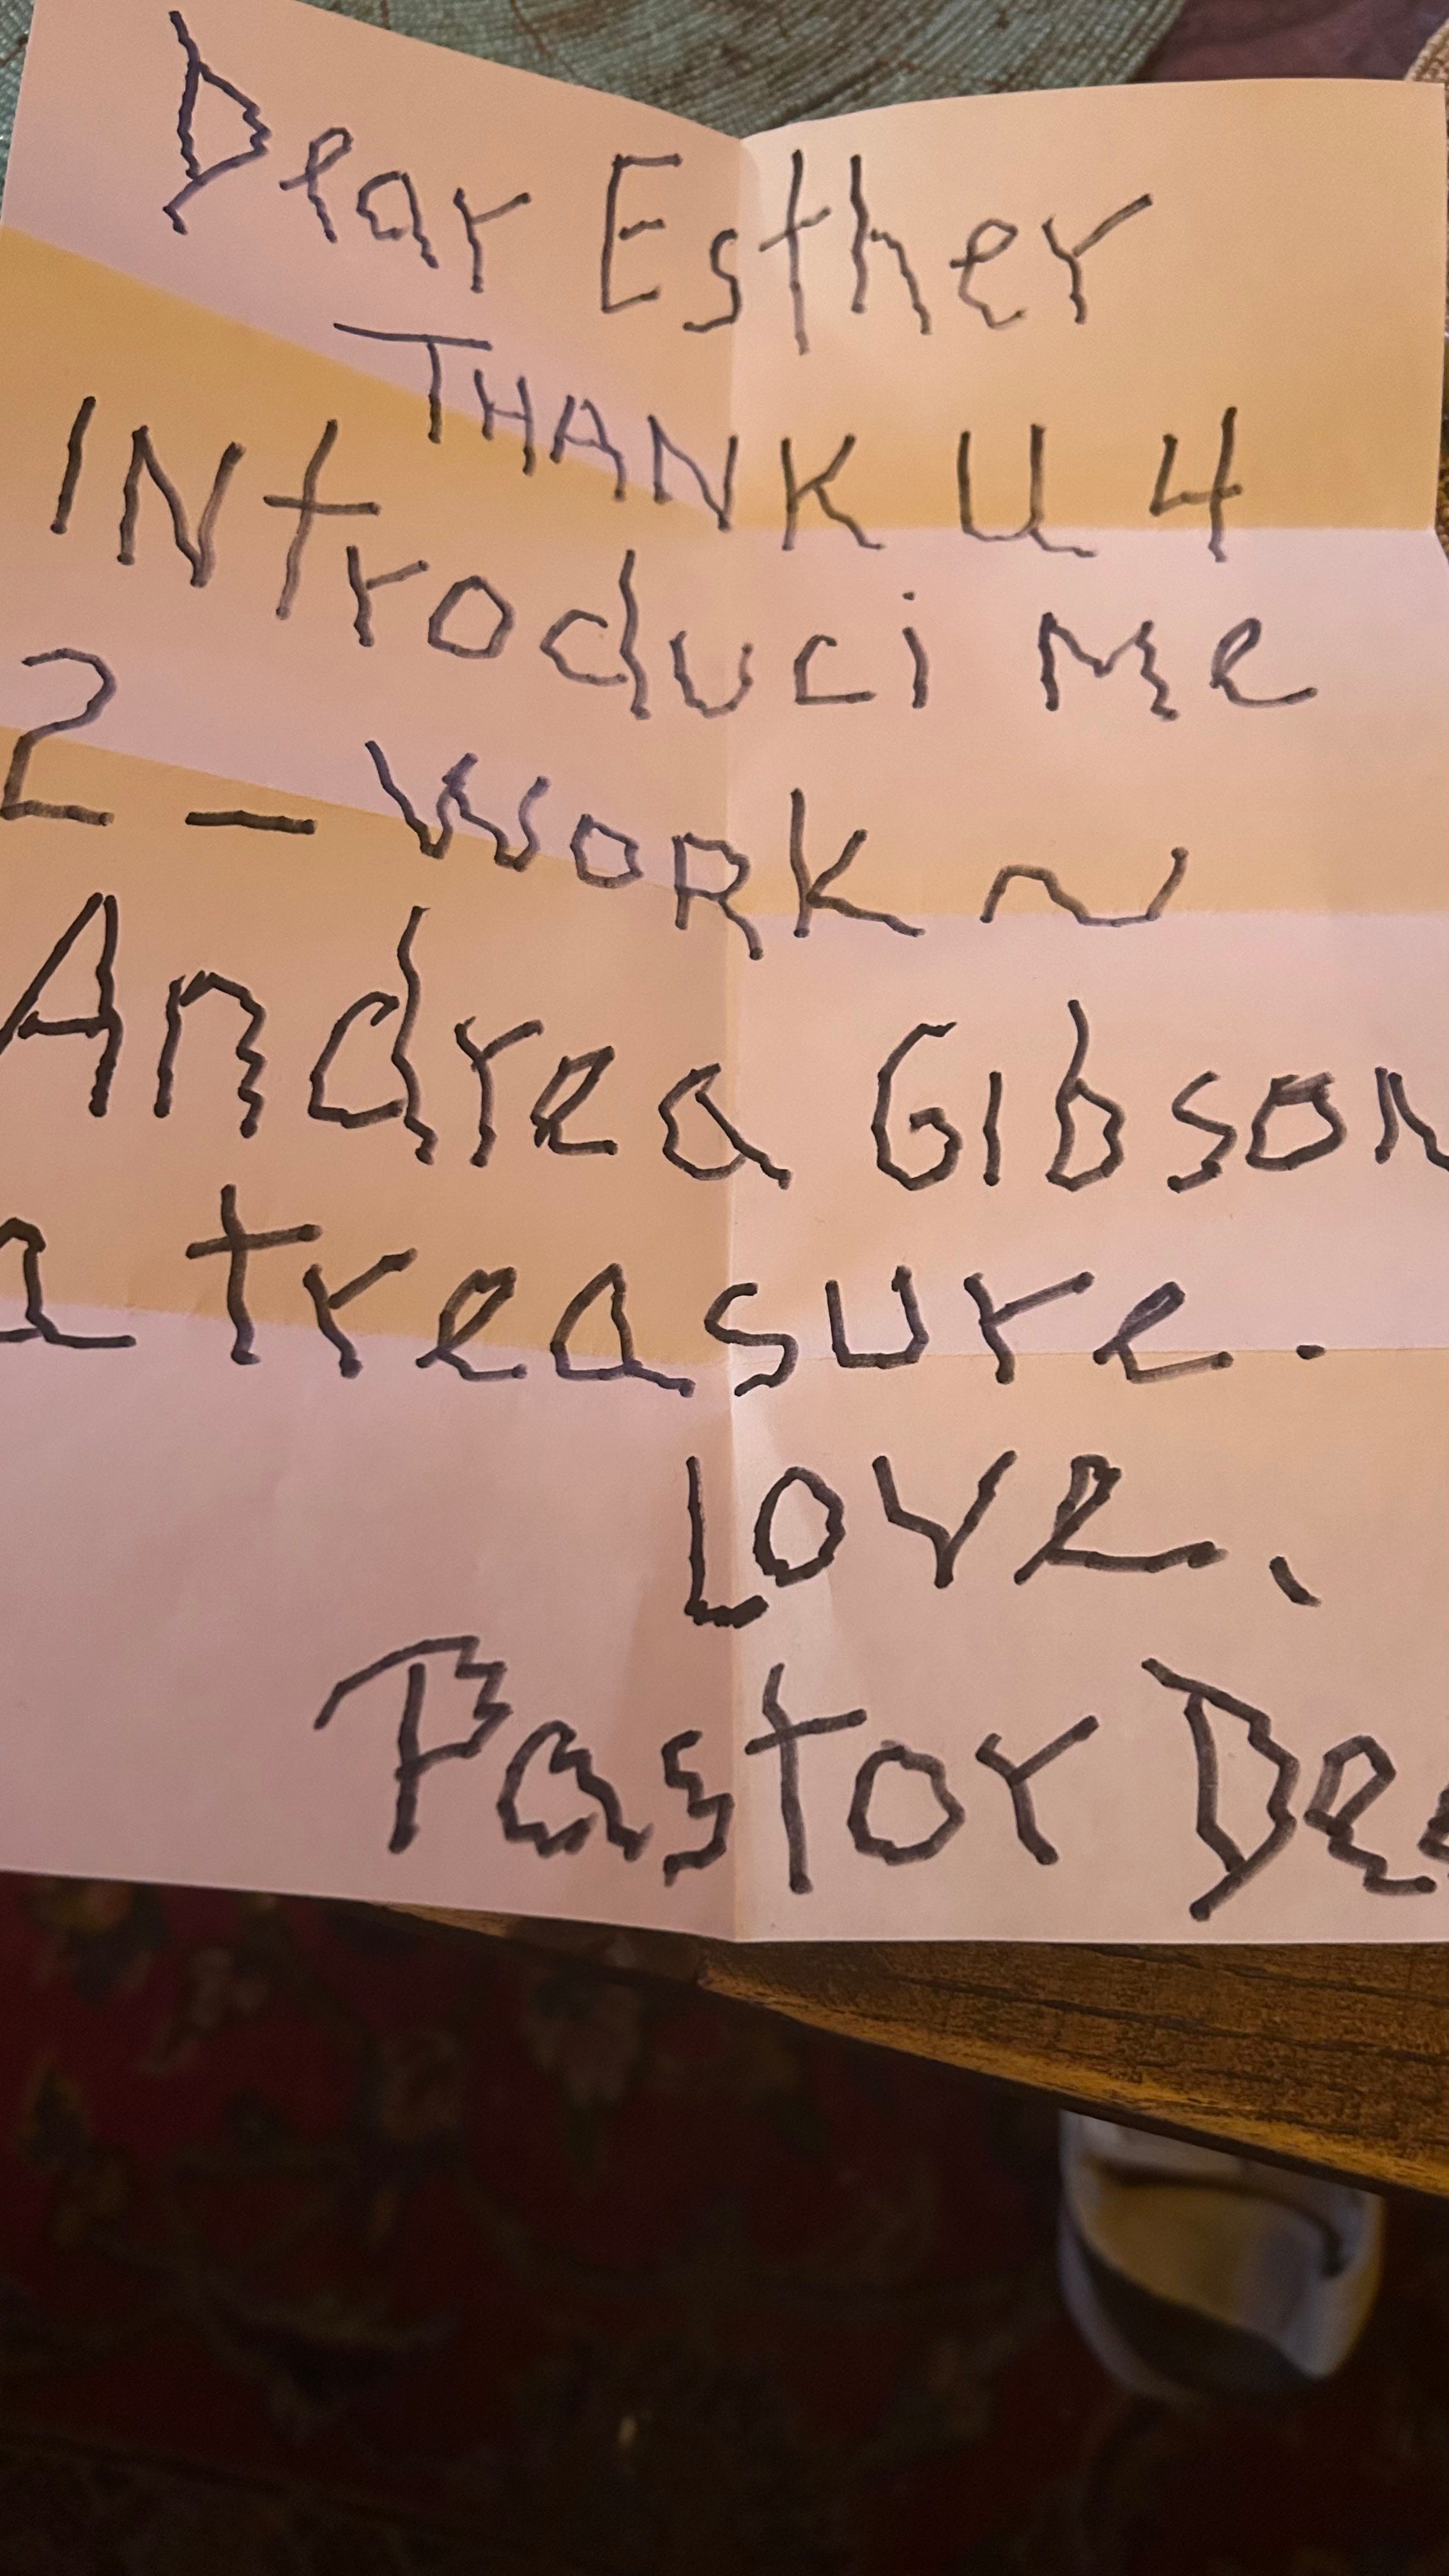 Dear Esther
THANK U 4
INtroduci Me
2 — WORK ~
Andrea Gibson
a treasure.
Love,
Pastor